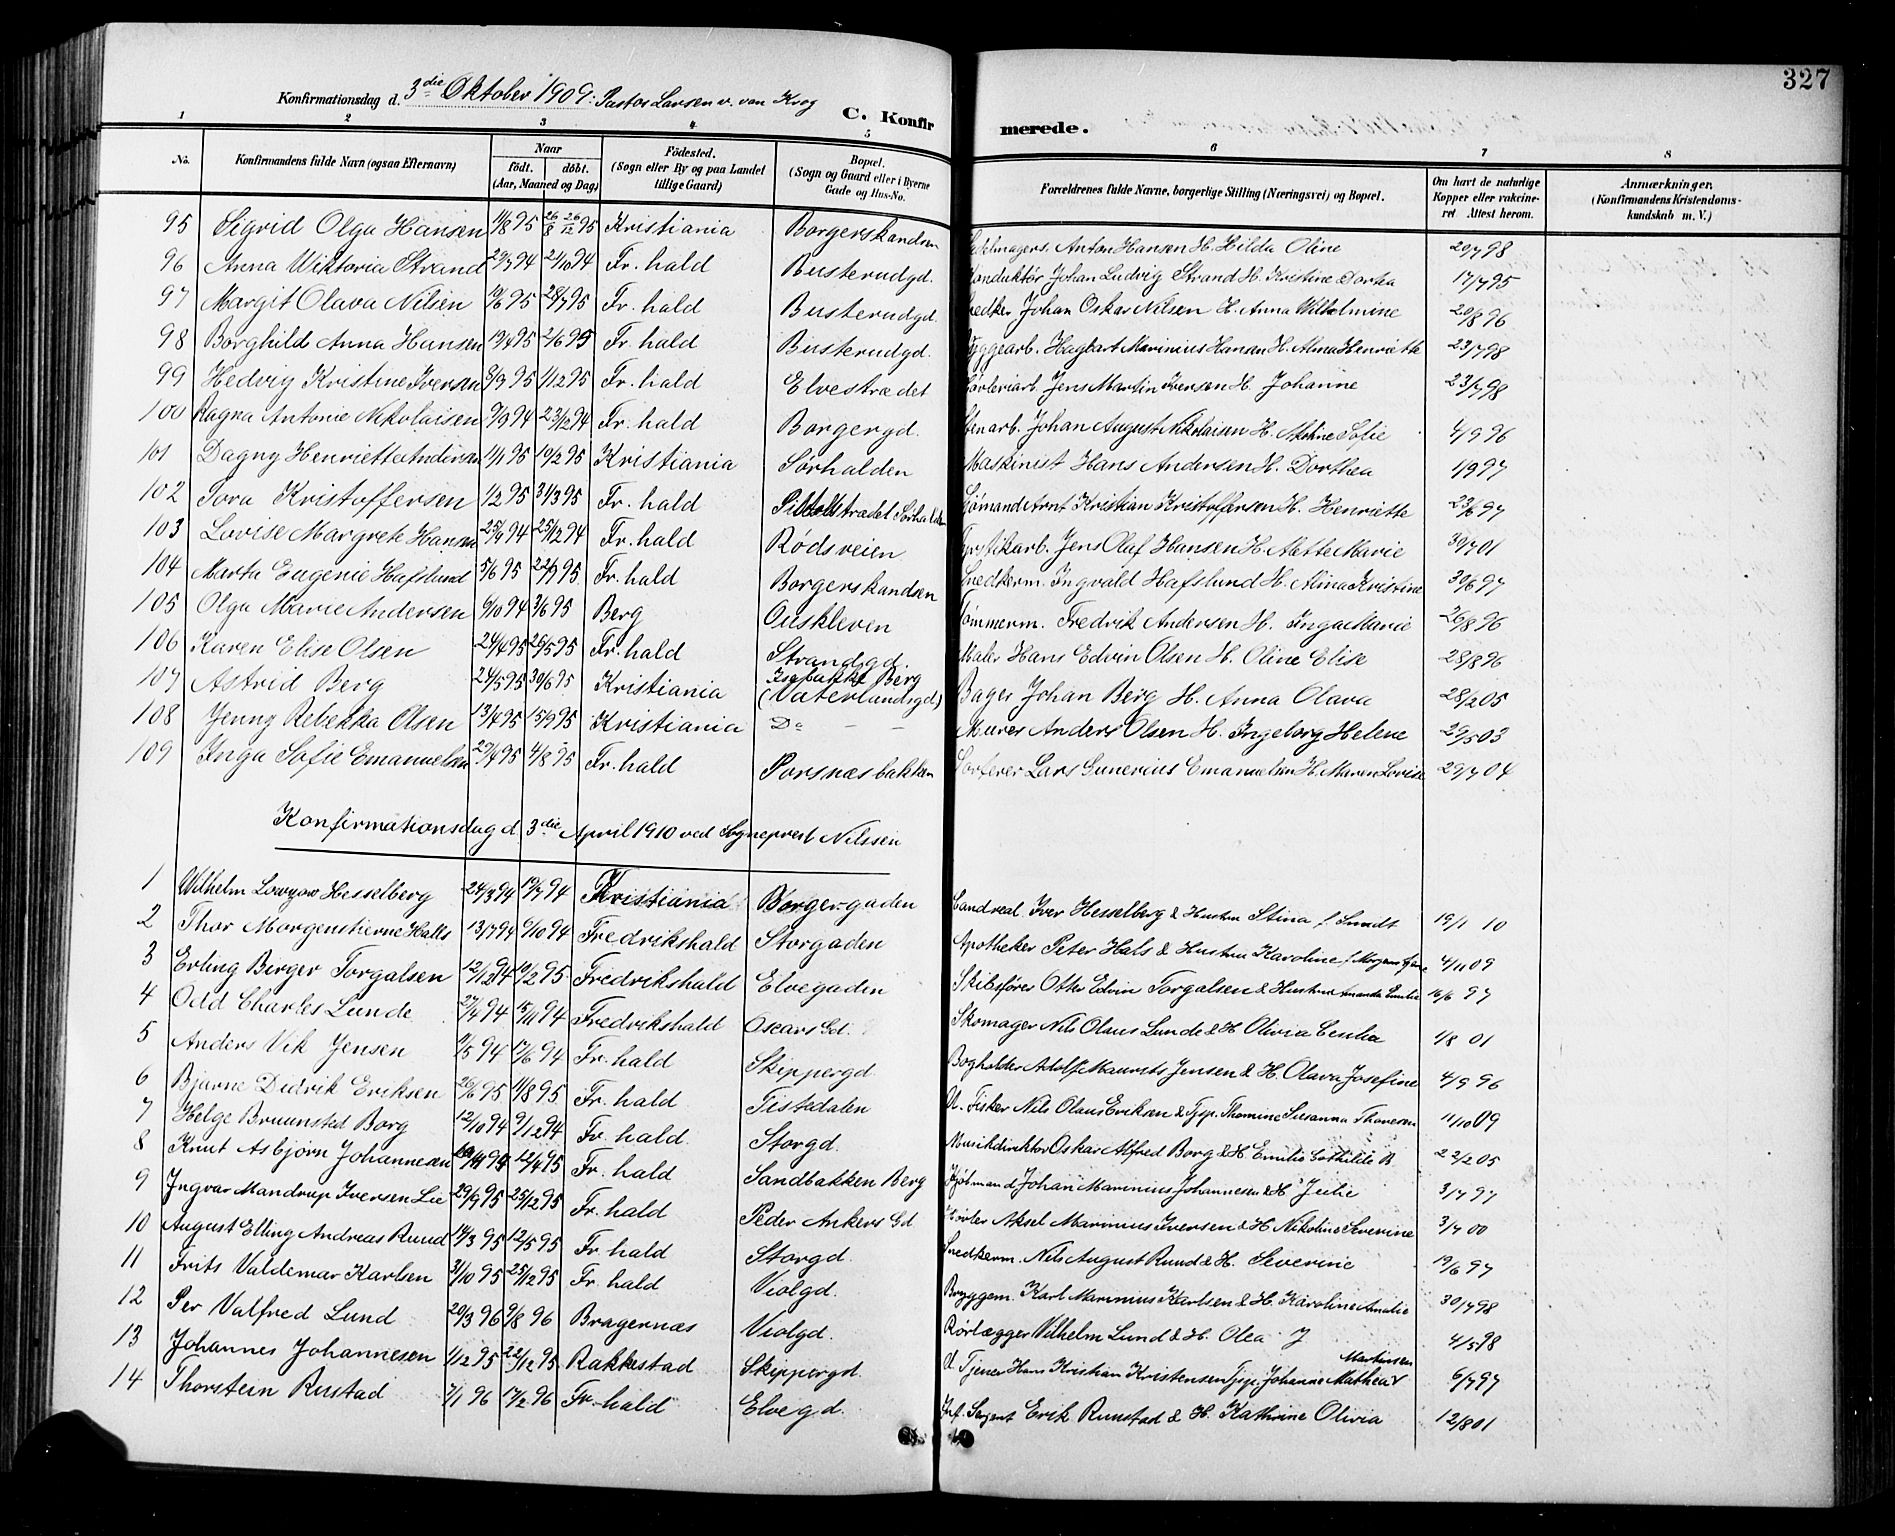 327
Konfirmationsdag d. 3die Oktober 1909: Pastor Larsen v. von Krog
C. Konfirmerede.
1 2 3 4 5 6 7 8
No. Konfirmandens fulde Navn (ogsaa Efternavn) Naar födt. döbt. (Aar, Maaned og Dag) Födested. (Sogn eller By og paa Landet tillige Gaard) Bopæl. (Sogn og Gaard eller i Byerne Gade og Hus-No. Forældrenes fulde Navne, borgerlige Stilling (Næringsvei) og Bopæl. Om havt de naturlige Kopper eller vaccineret. Attest herom. Anmærkninger. (Konfirmandens Kristendomskundskab m. V.)
95 Sigrid Olga Hansen 11/8 95 26/12 95 Kristiania Borgerskandsen Anton Hansen H. Hilda Oline 20/7 98
96 Anna Wiktoria Strand 29/3 94 21/10 94 Fr. hald Busterudgd. Konduktør Johan Ludvig Strand H. Kristine Dorthea 17/7 95
97 Margit Olava Nilsen 10/6 95 28/7 95 Fr. hald Busterudgd. Snedker Johan Oskar Nilsen H. Anna Wilhelmine 20/8 96
98 Borghild Anna Hansen 19/4 95 2/6 95 Fr. hald Busterudgd. Byggearb. Hagbart Marinius Hansen H. Alma Henriette 23/7 98
99 Hedvig Kristine Iversen 3/9 95 1/12 95 Fr. hald Elvestrædet Jens Martin Iversen H. Johanne 23/7 98
100 Ragna Antonie Nikolaisen 9/9 94 23/12 94 Fr. hald Borgergd. Stenarb. Johan August Nikolaisen H. Sofie 4/9 96
101 Dagny Henriette Andersen 11/1 95 10/2 95 Kristiania Sørhalden Maskinist Hans Andersen H. Dorthea 1/9 97
102 Tora Kristoffersen 1/2 95 31/3 95 Fr. hald Sørhalden Sjømand Arnt Kristian Kristoffersen H. Henriette 23/6 97
103 Lovise Margrete Hansen 25/9 94 25/12 94 Fr. hald Rødsveien Jens Olaf Hansen H. Mette Marie 30/7 01
104 Marta Eugenie Hafslund 5/6 95 22/9 95 Fr. hald Borgerskandsen Snedkerm. Ingvald Hafslund H. Alma Kristine 30/6 97
105 Olga Marie Andersen 6/10 94 3/6 95 Berg Ouskleven Tømmerm. Fredrik Andersen H. Inga Marie 26/8 96
106 Karen Elise Olsen 24/4 95 26/5 95 Fr. hald Strandgd. Maler Hans Edvin Olsen H. Oline Elise 28/8 96
107 Astrid Berg 24/5 95 30/6 95 Kristiania Berg (Vaterlandsgd) Bager Johan Berg H. Anna Olava 28/2 05
108 Jenny Rebekka Olsen 13/4 95 15/9 95 Kristiania Do — — Murer Anders Olsen H. Ingeborg Helene 29/5 03
109 Inga Sofie Emanuelsen 29/4 95 4/8 95 Fr. hald Porsnæsbakken Lars Gunerius Emanuelsen H. Maren Lovise 29/7 04
Konfirmationsdag d. 3die April 1910 ved Sogneprest Nilssen
1 Wilhelm Lowzow Hesselberg 24/3 94 19/7 94 Kristiania Borgergaden Cand real Iver Hesselberg & Hustru Stina f. Smidt 19/1 10
2 Thor Morgenstierne Hals 13/7 94 6/10 94 Fredrikshald Storgaden Apotheker Peter Hals & Hustru Karoline f. 4/11 09
3 Erling Birger Torgalsen 12/12 94 10/2 95 Fredrikshald Elvegaden Skibsfører Otto Edvin Torgalsen & Hustru Amanda Emilie 16/6 97
4 Odd Charles Lunde 27/4 94 15/11 94 Fredrikshald Oscars Gd. Skomager Nils Olaus Lunde & H. Olivia Cecilia 1/8 01
5 Anders Vik Jensen 9/5 94 17/6 94 Fr. hald Skippergd Bogholder Adolf Maurits Jensen & H. Olava Josefine 4/9 96
6 Bjarne Didrik Eriksen 26/6 95 11/8 95 Fr. hald Tistedalen U. Fisker Nils Olaus Eriksen & Tjsp. Thomine Susanna 11/10 09
7 Helge Bruunsted Borg 12/10 94 9/12 94 Fr. hald. Storgd. Musikdirektør Oskar Alfred Borg & H. Emilie B. 22/2 05
8 Knut Asbjørn Johannesen 12/4 95 Fr. hald Sandbakken Berg Johan Marinius Johannesen & H. Julie 3/7 97
9 Ingvar Mandrup Iversen Lie 29/9 95 25/12 95 Fr. hald Peder Ankers Gd Aksel Marinius Iversen & H. Nikoline Severine 3/7 00
10 August Elling Andreas Ruud 14/3 95 12/5 95 Fr. hald Storgd. Snedkerm. Nils August Ruud & H. Severine 19/6 97
11 Frits Valdemar Karlsen 31/10 95 25/12 95 Fr. hald Violgd. Bryggem. Karl Marinius Karlsen & H. Karoline Amalie 30/7 98
12 Per Valfred Lund 20/3 96 9/8 96 Bragernæs Violgd. Rørlægger Vilhelm Lund & H. Olea J 4/5 98
13 Johannes Johannesen 1/12 95 22/12 95 Rakkestad Skippergd. U. Tjener Hans Kristian Kristensen Tjsp. Johanne Mathea Martinsen 6/7 97
14 Thorstein Rustad 7/1 96 17/2 96 Fr. hald Elvegd. Inf. Sergent Erik Runstad & H. Kathrine Olivia 12/8 01